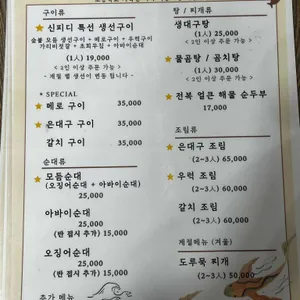 구이류
★ 신피디 특선 생선구이
숯불 모듬 생선구이 + 메로구이 + 우럭구이
가리비젓갈 + 초회무침 + 아바이순대
(1人) 19,000
< 2인 이상 주문 가능 >
- 계절 별 생선이 변동 됩니다 -
* SPECIAL
★ 메로 구이 35,000
★ 은대구 구이 35,000
갈치 구이 35,000
순대류
★ 모듬순대
(오징어순대 + 아바이순대)
25,000
아바이순대
25,000
(반 접시 추가) 15,000
오징어순대
25,000
(반 접시 추가) 15,000
추가 메뉴
탕 / 찌개류
생대구탕
(1人) 25,000
< 2인 이상 주문 가능 >
★ 물곰탕 / 곰치탕
(1人) 30,000
< 2인 이상 주문 가능 >
★ 전복 얼큰 해물 순두부
17,000
조림류
★ 은대구 조림
(2~3人) 65,000
★ 우럭 조림
(2~3人) 60,000
갈치 조림
(2~3人) 60,000
계절메뉴 (겨울)
도루묵 찌개
(2~3人) 50,000